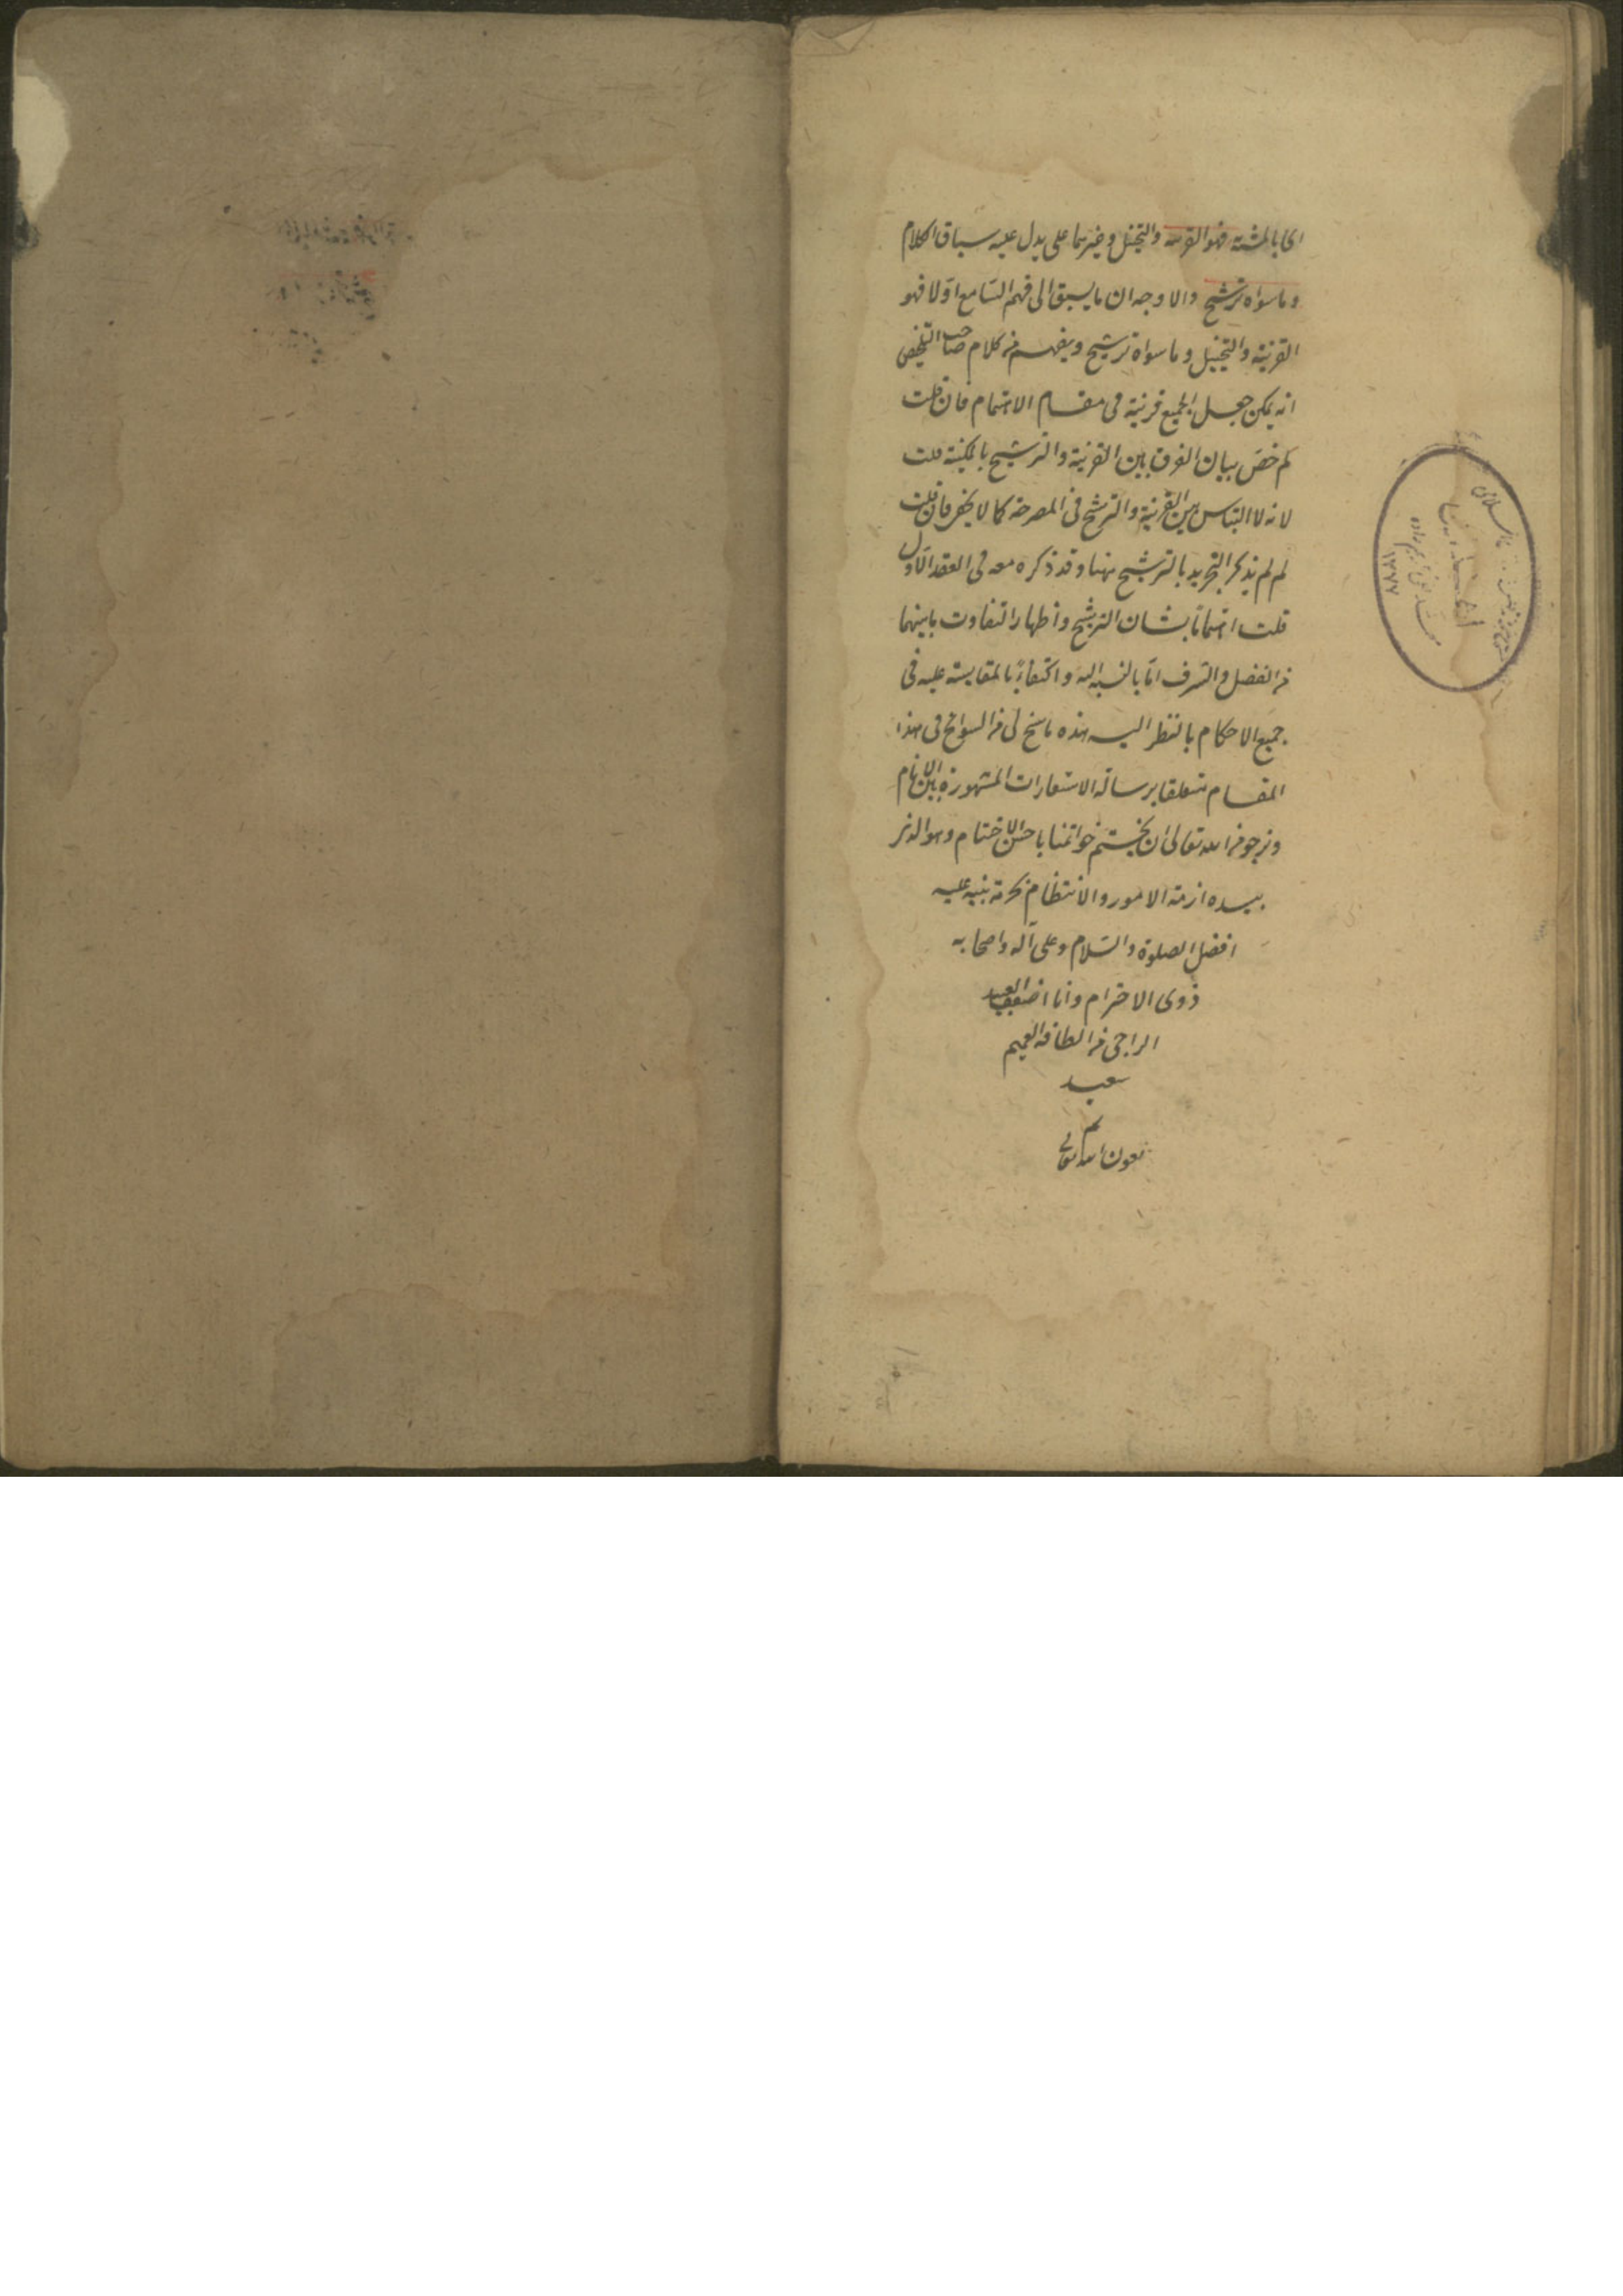 اى بالمشبه فهو القرينة والتخييل وغيرهما على يدل عليه سياق الكلام
وما سواه ترشيح والاوجه ان ما يسبق الى فهم السّامع اوّلا فهو
القرينة والتخييل وما سواه ترشيح ويفهم من كلام صاحب التلخيص
انه يمكن جعل الجميع قرينة فى مقام الاهتمام فان قلت
لم خصّ بيان الفرق بين القرينة والترشيح بالمكنية قلت
لانه لا التباس بين القرينة والترشيح فى المصرحة كما لا يخفى فان قلت
لم لم يذكر التجريد بالترشيح ههنا وقد ذكره معه فى العقد الاوّل
قلت اهتمامًا بشان الترشيح واظهار التفاوت ما بينهما
من الفضل والشرف امّا بالنسبة اليه واكتفاءً بالمقايسة عليه فى
جميع الاحكام بالنظر اليه هذه ما سنح لى من السوانح فى هذا
المقام متعلقا برسالة الاستعارات المشهورة بين الانام
ونرجو من الله تعالى ان يختم خواتمنا باحسن الاختتام وهو الذى
بيده ازمة الامور والانتظام بحرمة نبيه عليه
افضل الصلوة والسّلام وعلى آله واصحابه
ذوى الاحترام وانا اضعف العبيد
الراجى من الطافه العميم
سعيد
تم
بعون الله تعالى
١٢٧٧